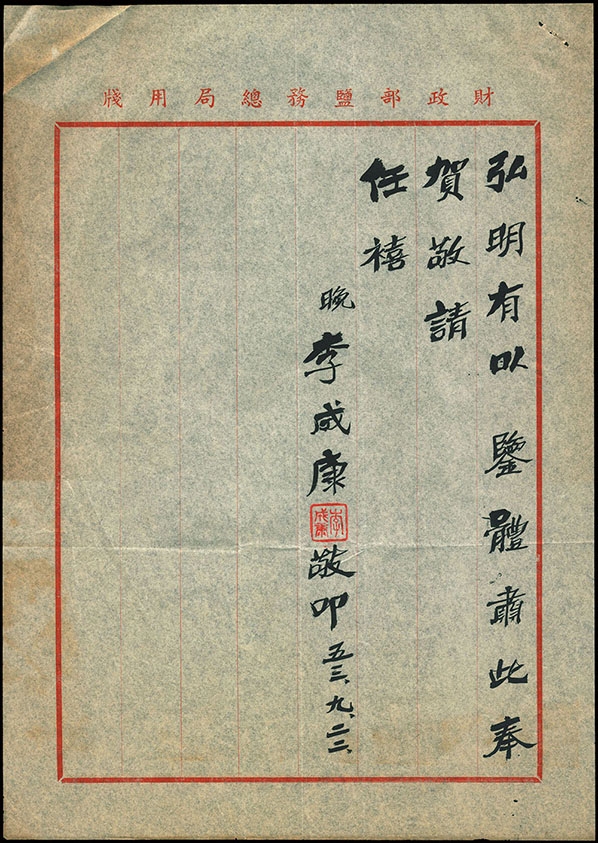 財政部鹽務總局用牋
弘明有以 鑒體肅此奉
賀敬請
任禧
晚 李成康 李成康 敬叩 五三、九、二二、